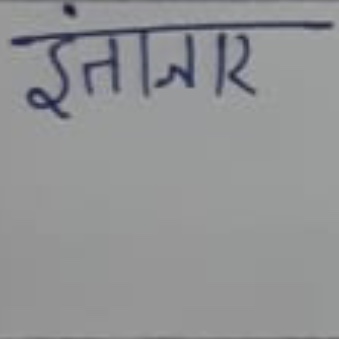 इंताजार